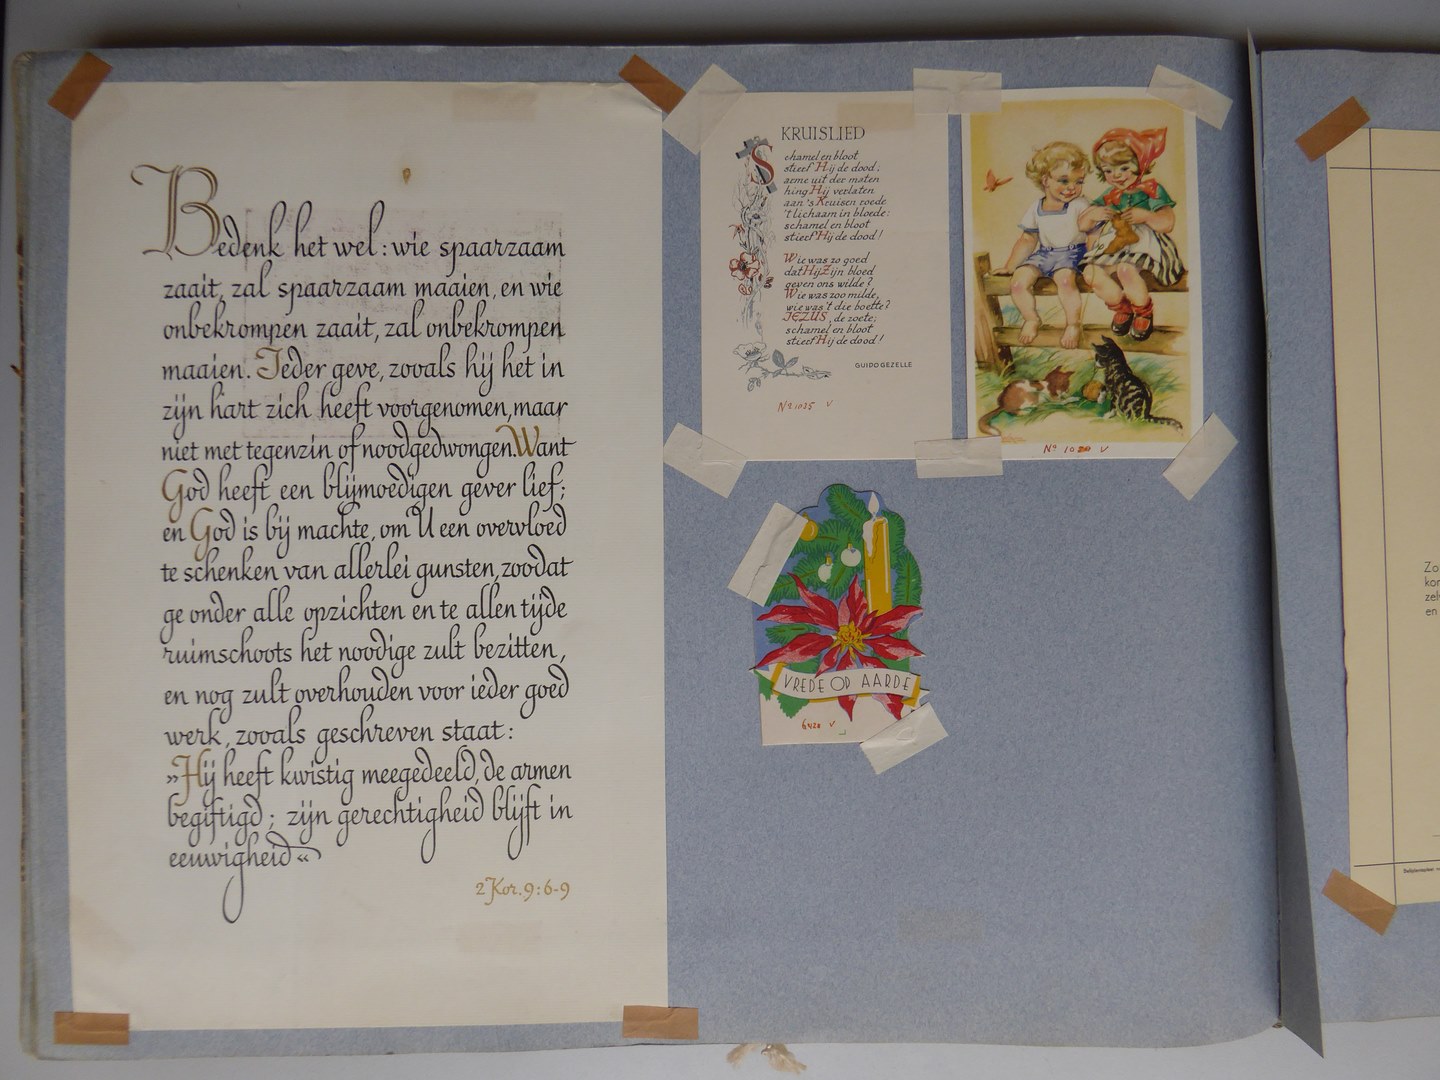 Bedenk het wel: wie spaarzaam
zaait, zal spaarzaam maaien, en wie
onbekrompen zaait, zal onbekrompen
maaien. Ieder geve, zooals hij het in
zijn hart zich heeft voorgenomen, maar
niet met tegenzin of noodgedwongen. Want
God heeft een blijmoedigen gever lief;
en God is bij machte, om U een overvloed
te schenken van allerlei gunsten, zoodat
ge onder alle opzichten en te allen tijde
ruimschoots het noodige zult bezitten,
en nog zult overhouden voor ieder goed
werk, zooals geschreven staat:
»Hij heeft kwistig meegedeeld, de armen
begiftigd; zijn gerechtigheid blijft in
eeuwigheid«
2 Kor. 9:6-9
KRUISLIED
Schamel en bloot
stierf Hij de dood;
arme uit der maten
hing Hij verlaten
aan 's Kruisen roede
't lichaam in bloede:
schamel en bloot
stierf Hij de dood!
Wie was zo goed
dat Hij Zijn bloed
geven ons wilde?
Wie was zoo milde,
wie was 't die boette?
JEZUS, de zoete;
schamel en bloot
stierf Hij de dood!
GUIDO GEZELLE
No 1035 V
No 1020 V
VREDE OP AARDE
6420 V
Zo
kor
zel
en